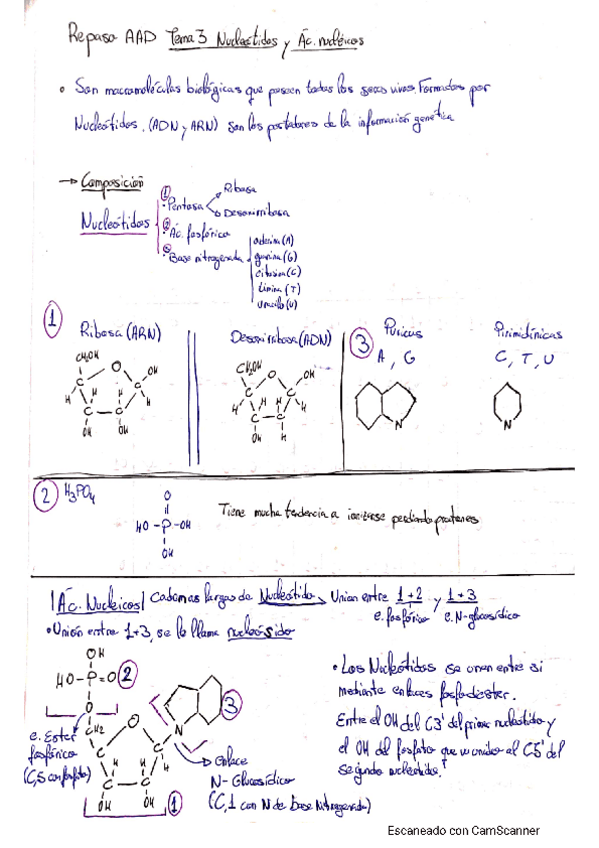 Repaso AAD Tema 3 Nucleótidos y Ác. nucleicos
• Son macromoléculas biológicas que poseen todos los seres vivos Formados por
Nucleótidos. (ADN y ARN) son los portadores de la información genética
→ Composición
Nucleótidos
① Pentosa
Ribosa
Desoxirribosa
② Ác. fosfórico
③ Base nitrogenada
adenina (A)
guanina (G)
citosina (C)
timina (T)
uracilo (U)
① Ribosa (ARN)
CH2OH
O
OH
C
C
H
H
H
H
C
C
OH
OH
Desoxirribosa (ADN)
CH2OH
O
OH
C
C
H
H
H
H
C
C
OH
H
③ Púricas
A, G
N
Pirimidínicas
C, T, U
N
② H3PO4
O
HO-P-OH
OH
Tiene mucha tendencia a ionizarse perdiendo protones
Ác. Nucleicos Cadenas largas de Nucleótido Union entre 1+2 y 1+3
e. fosfórico e. N-glucosídico
• Unión entre 1+3, se le llama nucleósido
OH
HO-P=O ②
O
e. Ester
fosfórico
(C,5 con fosfato)
CH2
O
C
C
H
H
H
H
C
C
OH
OH
①
N
③
Enlace
N-Glucosídico
(C,1 con N de base Nitrogenada)
• Los Nucleótidos se unen entre si
mediante enlaces fosfodiester.
Entre el OH del C3' del primer nucleótido y
el OH del fosfato que va unido al C5' del
segundo nucleótido.
Escaneado con CamScanner